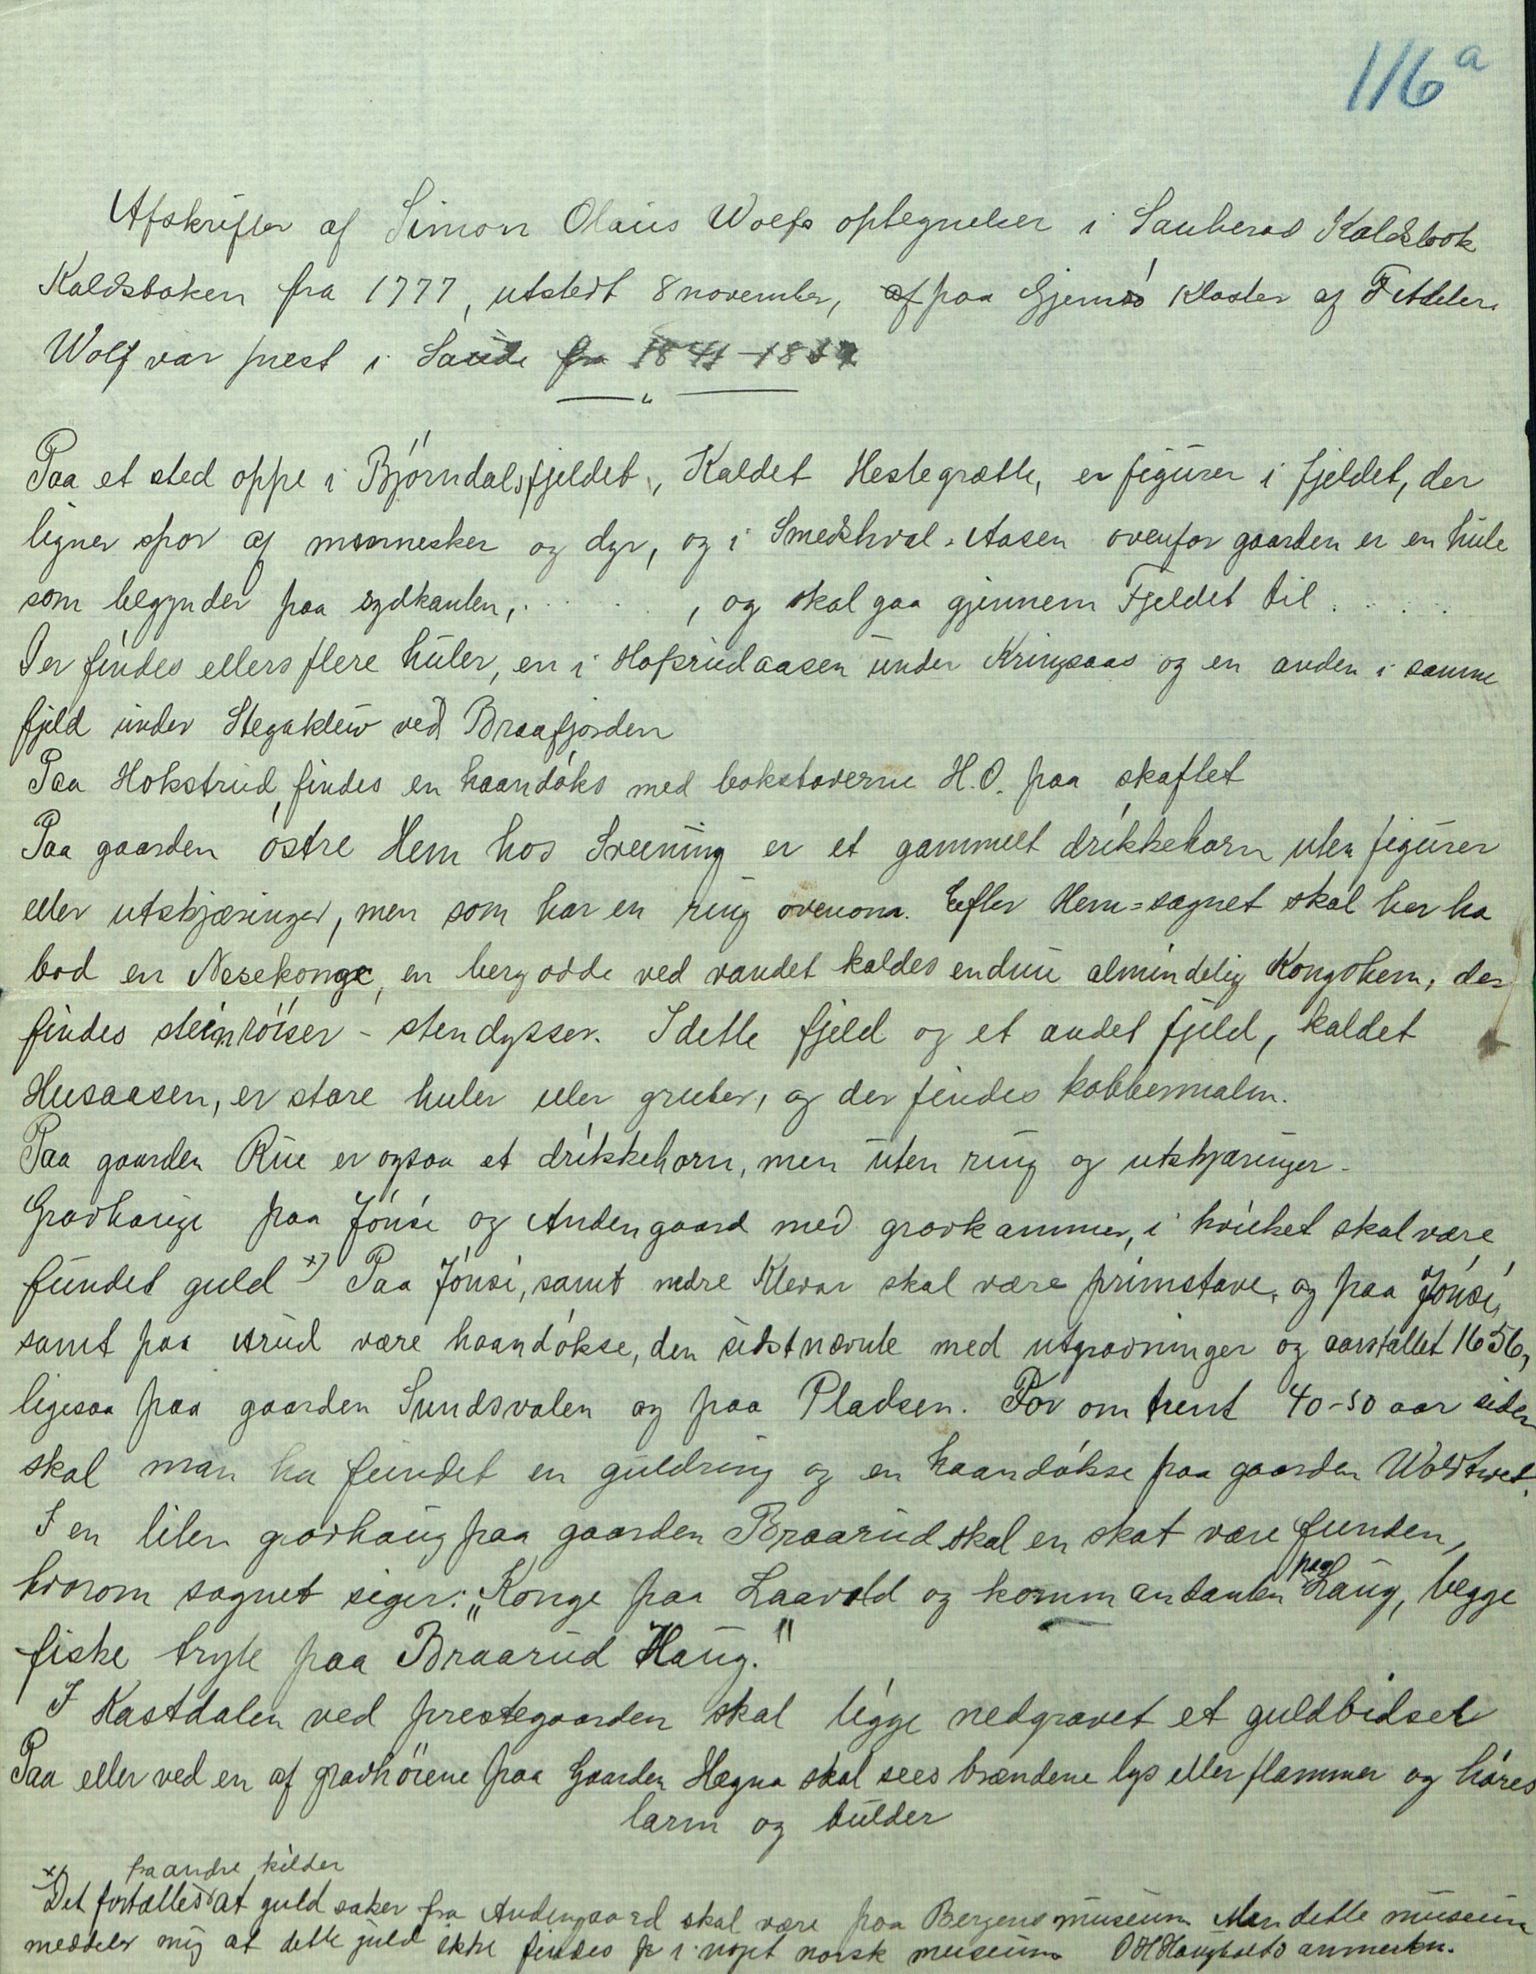 116 a
Afskrifter af Simon Olaus Wolfs optegnelser i Sauherad Kaldsbok
Kaldsboken fra 1777, utstedt 8 november, af paa Gjemsö Kloster af
Wolf var prest i Saude fra
Paa et sted oppe i Björndalsfjeldet, Kaldet Hestegrætte, er figurer i fjeldet, der
ligner spor af mennesker og dyr, og i Smedshval-Aasen ovenfor gaarden er en hule
som begynder paa sydkanten, . . . . . . , og skal gaa gjennem Fjeldet til . . . . .
Der findes ellers flere huler, en i Hofsrudaasen under Kringsaas og en anden i samme
fjeld under Stegaklew ved Braafjorden
Paa Hokstrud findes en haandöks med bokstaverne H.O. paa skaftet
Paa gaarden östre Hem hos Sveinung er et gammelt drikkehorn uten figurer
eller utskjæringer, men som har en ring ovenom. Efter Hem=sagnet skal her ha
bod en Nesekonge, en bergodde ved vandet kaldes endnu almindelig Kongshem, der
findes steinröiser - stendysser. I dette fjeld og et andet fjeld, kaldet
Husaasen, er store huler eller gruber, og der findes kobbermalm.
Paa gaarden Rue er ogsaa et drikkehorn, men uten ring og utskjæringer -
Gravhauge paa Jónsi og Andengaard med gravkammer, i hvilket skal være
fundet guld x) Paa Jónsi, samt nedre Klevar skal være primstave, og paa Jónsi,
samt paa Arud være haandökse, den sidstnævnte med utgravninger og aarstallet 1656,
ligesaa paa gaarden Sundsvalen og paa Pladsen. For omtrent 40-50 aar siden
skal man ha fundet en guldring og en haandökse paa gaarden Woldtvet.
I en liten gravhaug paa gaarden Braarud skal en skat være funden,
hvorom sagnet siger: "Konge paa Laavold og kommandanten paa Haug, begge
fiske tryte paa Braarud Haug."
I Kastdalen ved prestegaarden skal ligge nedgravet et guldbidsel
Paa eller ved en af gravhöiene paa Gaarden Hegna skal sees brændene lys eller flammer og höres
larm og bulder
fra andre kilder
x) Det fortælles at guld saker fra Andengaard skal være paa Bergens museum Men dette museum
meddeler mig at dette guld ikke findes i noget norsk museum O H Haugholts anmerkn.